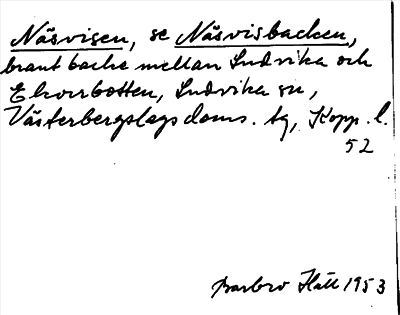 Näsvisen, se Näsvisbacken,
brant backe mellan Ludvika och
Ekorrbotten, Ludvika sn,
Västerbergslags doms. tg, Kopp. l.
52
Barbro Häll 1953